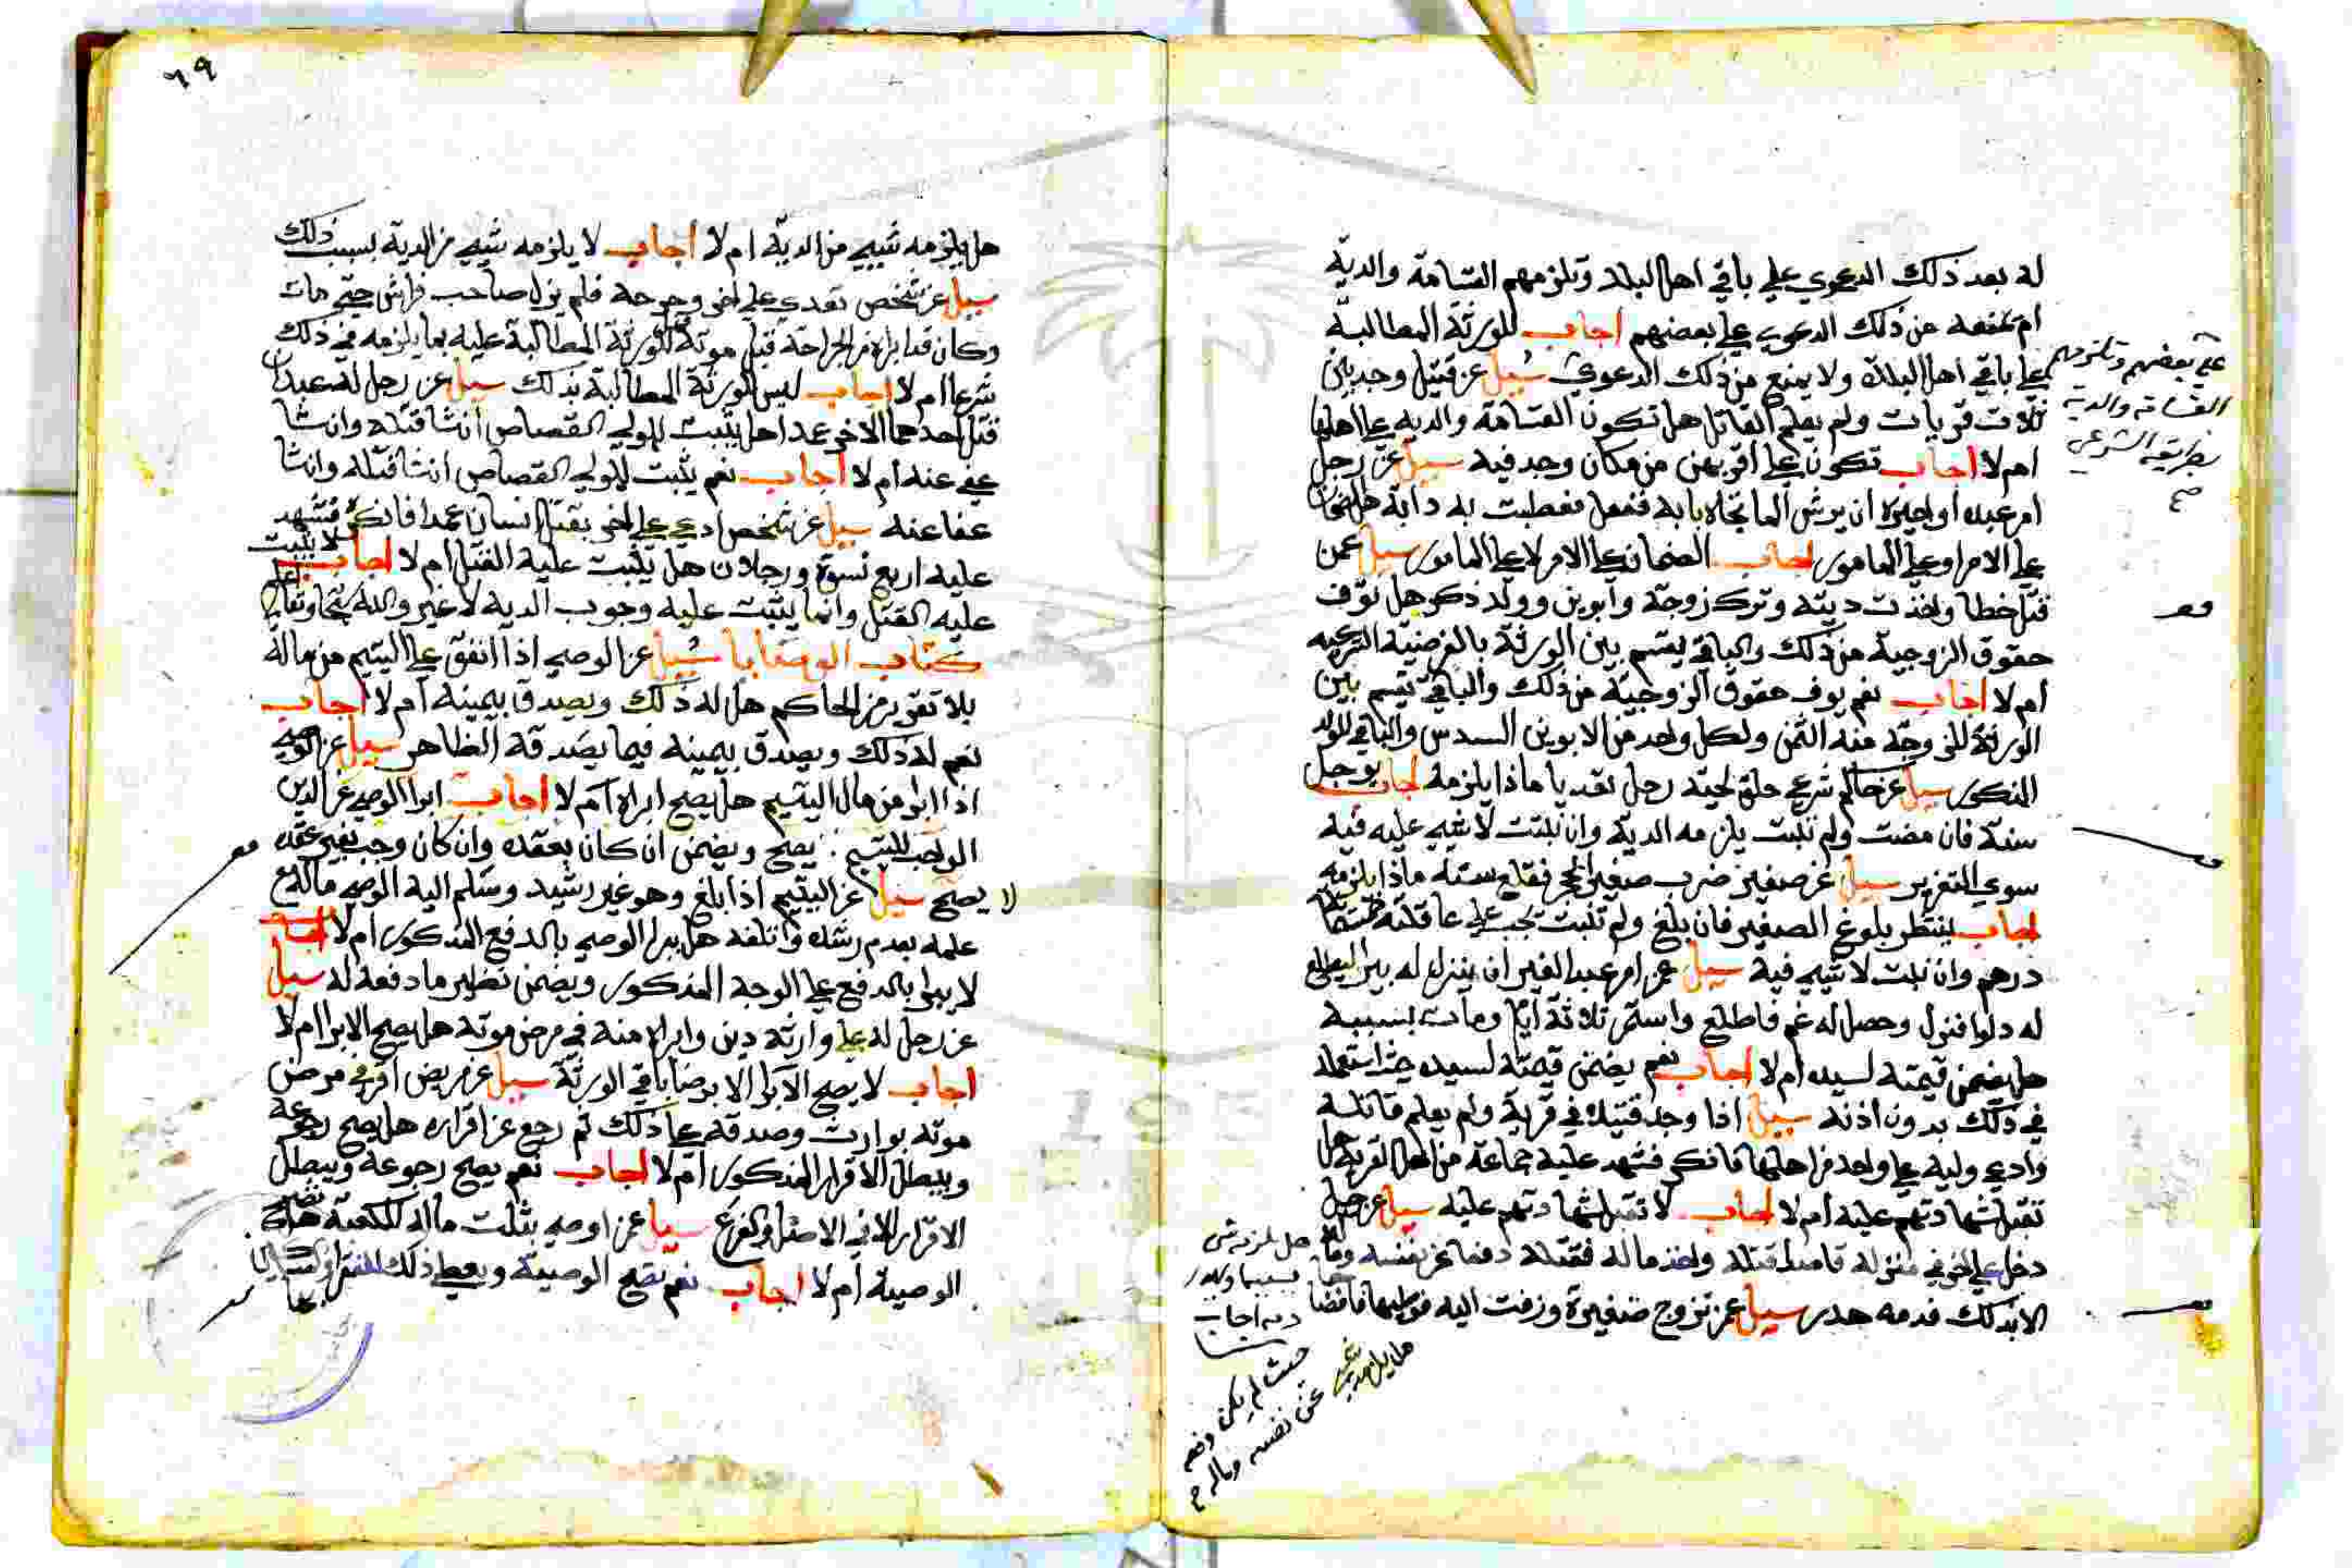 له بعد ذلك الدعوي علي باقي اهل البلد وتلزمهم القسامة والدية
ام تمنعه من ذلك الدعوي علي بعضهم اجاب للورثة المطالبة
علي باقي اهل البلد ولا يمنع من ذلك الدعوي سيل عن قتيل وجد بين
ثلاث قريات ولم يعلم القاتل هل تكون القسامة والدية علي اهلها
ام لا اجاب تكون علي اقربهن من مكان وجد فيه سيل عن رجل
امر عبده او اجيره ان يرش الما تجاه بابه ففعل فعطبت به دابة هل الضمان
علي الامر او علي المامور اجاب الضمان علي الامر لا علي المامور سيل عمن
قتل خطا واخذت ديته وترك زوجة وابوين وولد ذكر هل توف
حقوق الزوجية من ذلك والباقي يقسم بين الورثة بالفرضية الشرعيه
ام لا اجاب نعم يوف حقوق الزوجية من ذلك والباقي يقسم بين
الورثة للزوجة منه الثمن ولكل واحد من الابوين السدس والباقي للولد
المذكور سيل عن حاكم شرعي حلق لحية رجل تعديا ماذا يلزمه اجاب يوجل
سنة فان مضت ولم تنبت يلزمه الدية وان نبتت لا شيء عليه فيه
سوي التعزير سيل عن صغير ضرب صغير بحجر فقلع سنه ماذا يلزمه
اجاب ينتظر بلوغ الصغير فان بلغ ولم تنبت تجب علي عاقلته خمسماية
درهم وان نبت لا شيء فيه سيل عمن امر عبد الغير ان ينزل له بير ليطلع
له دلوا فنزل وحصل له غم فاطلع واستمر ثلاثة ايام ومات بسببه
هل يضمن قيمته لسيده ام لا اجاب نعم يضمن قيمته لسيده حيث استعمله
في ذلك بدون اذنه سيل اذا وجد قتيلا في قرية ولم يعلم قاتله
وادعي وليه علي واحد من اهلها فانكر فشهد عليه جماعة من اهل القرية هل
تقبل شهادتهم عليه ام لا اجاب لا تقبل شهادتهم عليه سيل عن رجل
دخل علي اخر في منزله قاصدا قتله واخذ ماله فقتله دفعا عن نفسه وماله
الا بذلك فدمه هدر سيل عمن تزوج صغيرة وزفت اليه فوطيها فافضاها
علي بعضهم وتلزمهم
القسامة والدية
بطريقه الشرعي
صح
هل يلزمه شي
بسببها ويكون
دمه اجاب
حيث لم يكن دفعه
عن نفسه وماله
هل يلزمه شي
٦٩
هل يلزمه شيء من الدية ام لا اجاب لا يلزمه شيء من الدية بسبب ذلك
سيل عن شخص تعدي علي اخر وجرحه فلم يزل صاحب فراش حتي مات
وكان قد ابراه من الجراحة قبل موته للورثة المطالبة عليه بما يلزمه في ذلك
شرعا ام لا اجاب ليس للورثة المطالبة بذلك سيل عن رجل له عبدان
قتل احدهما الاخر عمدا هل يثبت للمولي القصاص ان شا قتله وان شا
عفي عنه ام لا اجاب نعم يثبت للمولي القصاص ان شا قتله وان شا
عفا عنه سيل عن شخص ادعي علي اخر بقتل انسان عمدا فانكر فشهد
عليه اربع نسوة ورجلان هل يثبت عليه القتل ام لا اجاب لا يثبت
عليه القتل وانما يثبت عليه وجوب الدية لا غير والله سبحانه وتعالي اعلم
كتاب الوصايا سيل عن الوصي اذا انفق علي اليتيم من ماله
بلا تقرير من الحاكم هل له ذلك ويصدق بيمينه ام لا اجاب
نعم له ذلك ويصدق بيمينه فيما يصدقه الظاهر سيل عن الوصي
اذا ابرا من مال اليتيم هل يصح ابراه ام لا اجاب ابرا الوصي عن الدين
الواجب لليتيم يصح ويضمن ان كان بعقده وان كان وجب بغير عقده
لا يصح سيل عن اليتيم اذا بلغ وهو غير رشيد وسلم اليه الوصي ماله مع
علمه بعدم رشده واتلفه هل يبرا الوصي بالدفع المذكور ام لا اجاب
لا يبرا بالدفع علي الوجه المذكور ويضمن نظير ما دفعه له سيل
عن رجل له علي وارثه دين وابراه منه في مرض موته هل يصح الابرا ام لا
اجاب لا يصح الابرا الا برضا باقي الورثة سيل عن مريض اقر في مرض
موته بوارث وصدقه علي ذلك ثم رجع عن اقراره هل يصح رجوعه
ويبطل الاقرار المذكور ام لا اجاب نعم يصح رجوعه ويبطل
الاقرار لا في الاصل والفرع سيل عمن اوصي بثلث ماله للكعبة هل تصح
الوصية ام لا اجاب نعم تصح الوصية ويعطي ذلك لفقرا